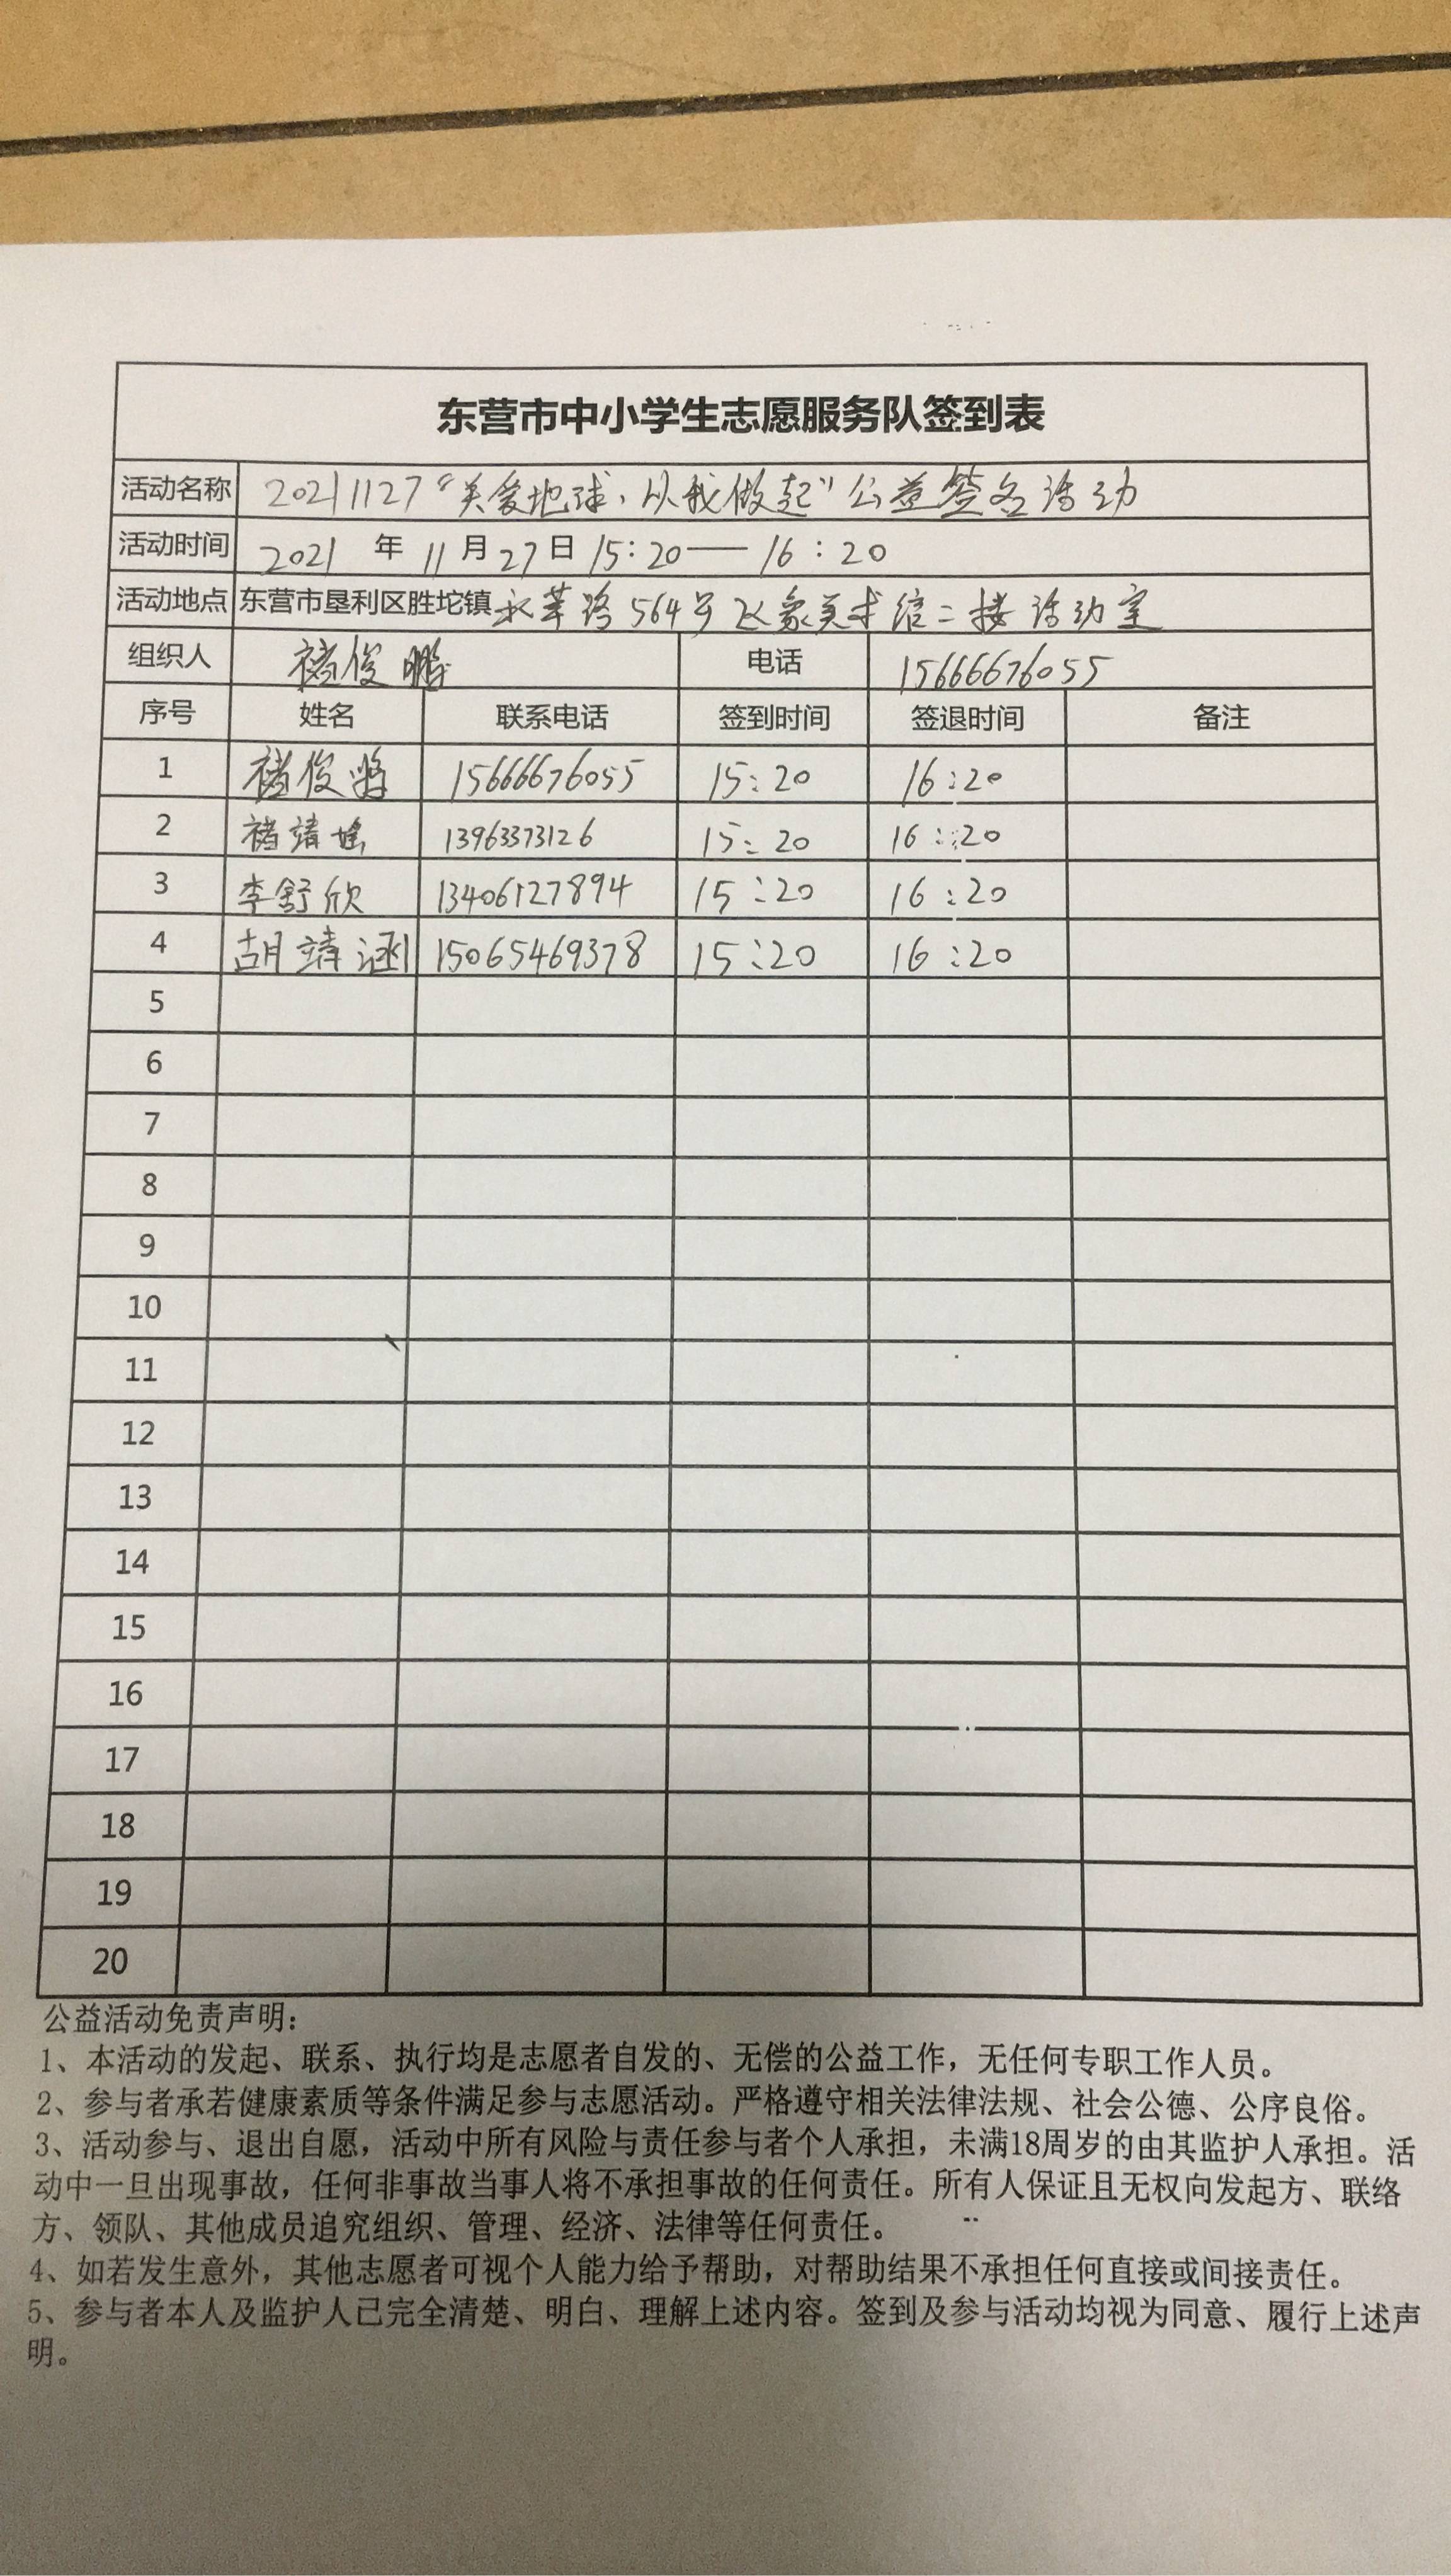 东营市中小学生志愿服务队签到表
活动名称 20211127“关爱地球,从我做起”公益签名活动
活动时间 2021 年 11 月 27 日 15:20——16:20
活动地点 东营市垦利区胜坨镇永莘路564号飞象美术 二楼活动室
组织人 褚俊鹏 电话 15666676055
序号 姓名 联系电话 签到时间 签退时间 备注
1 褚俊鹏 15666676055 15:20 16:20
2 褚靖瑶 1396373126 15:20 16:20
3 李舒欣 13406127894 15:20 16:20
4 胡靖涵 15065469378 15:20 16:20
5
6
7
8
9
10
11
12
13
14
15
16
17
18
19
20
公益活动免责声明:
1、本活动的发起、联系、执行均是志愿者自发的、无偿的公益工作,无任何专职工作人员。
2、参与者承若健康素质等条件满足参与志愿活动。严格遵守相关法律法规、社会公德、公序良俗。
3、活动参与、退出自愿,活动中所有风险与责任参与者个人承担,未满18周岁的由其监护人承担。活
动中一旦出现事故,任何非事故当事人将不承担事故的任何责任。所有人保证且无权向发起方、联络
方、领队、其他成员追究组织、管理、经济、法律等任何责任。
4、如若发生意外,其他志愿者可视个人能力给予帮助,对帮助结果不承担任何直接或间接责任。
5、参与者本人及监护人已完全清楚、明白、理解上述内容。签到及参与活动均视为同意、履行上述声
明。